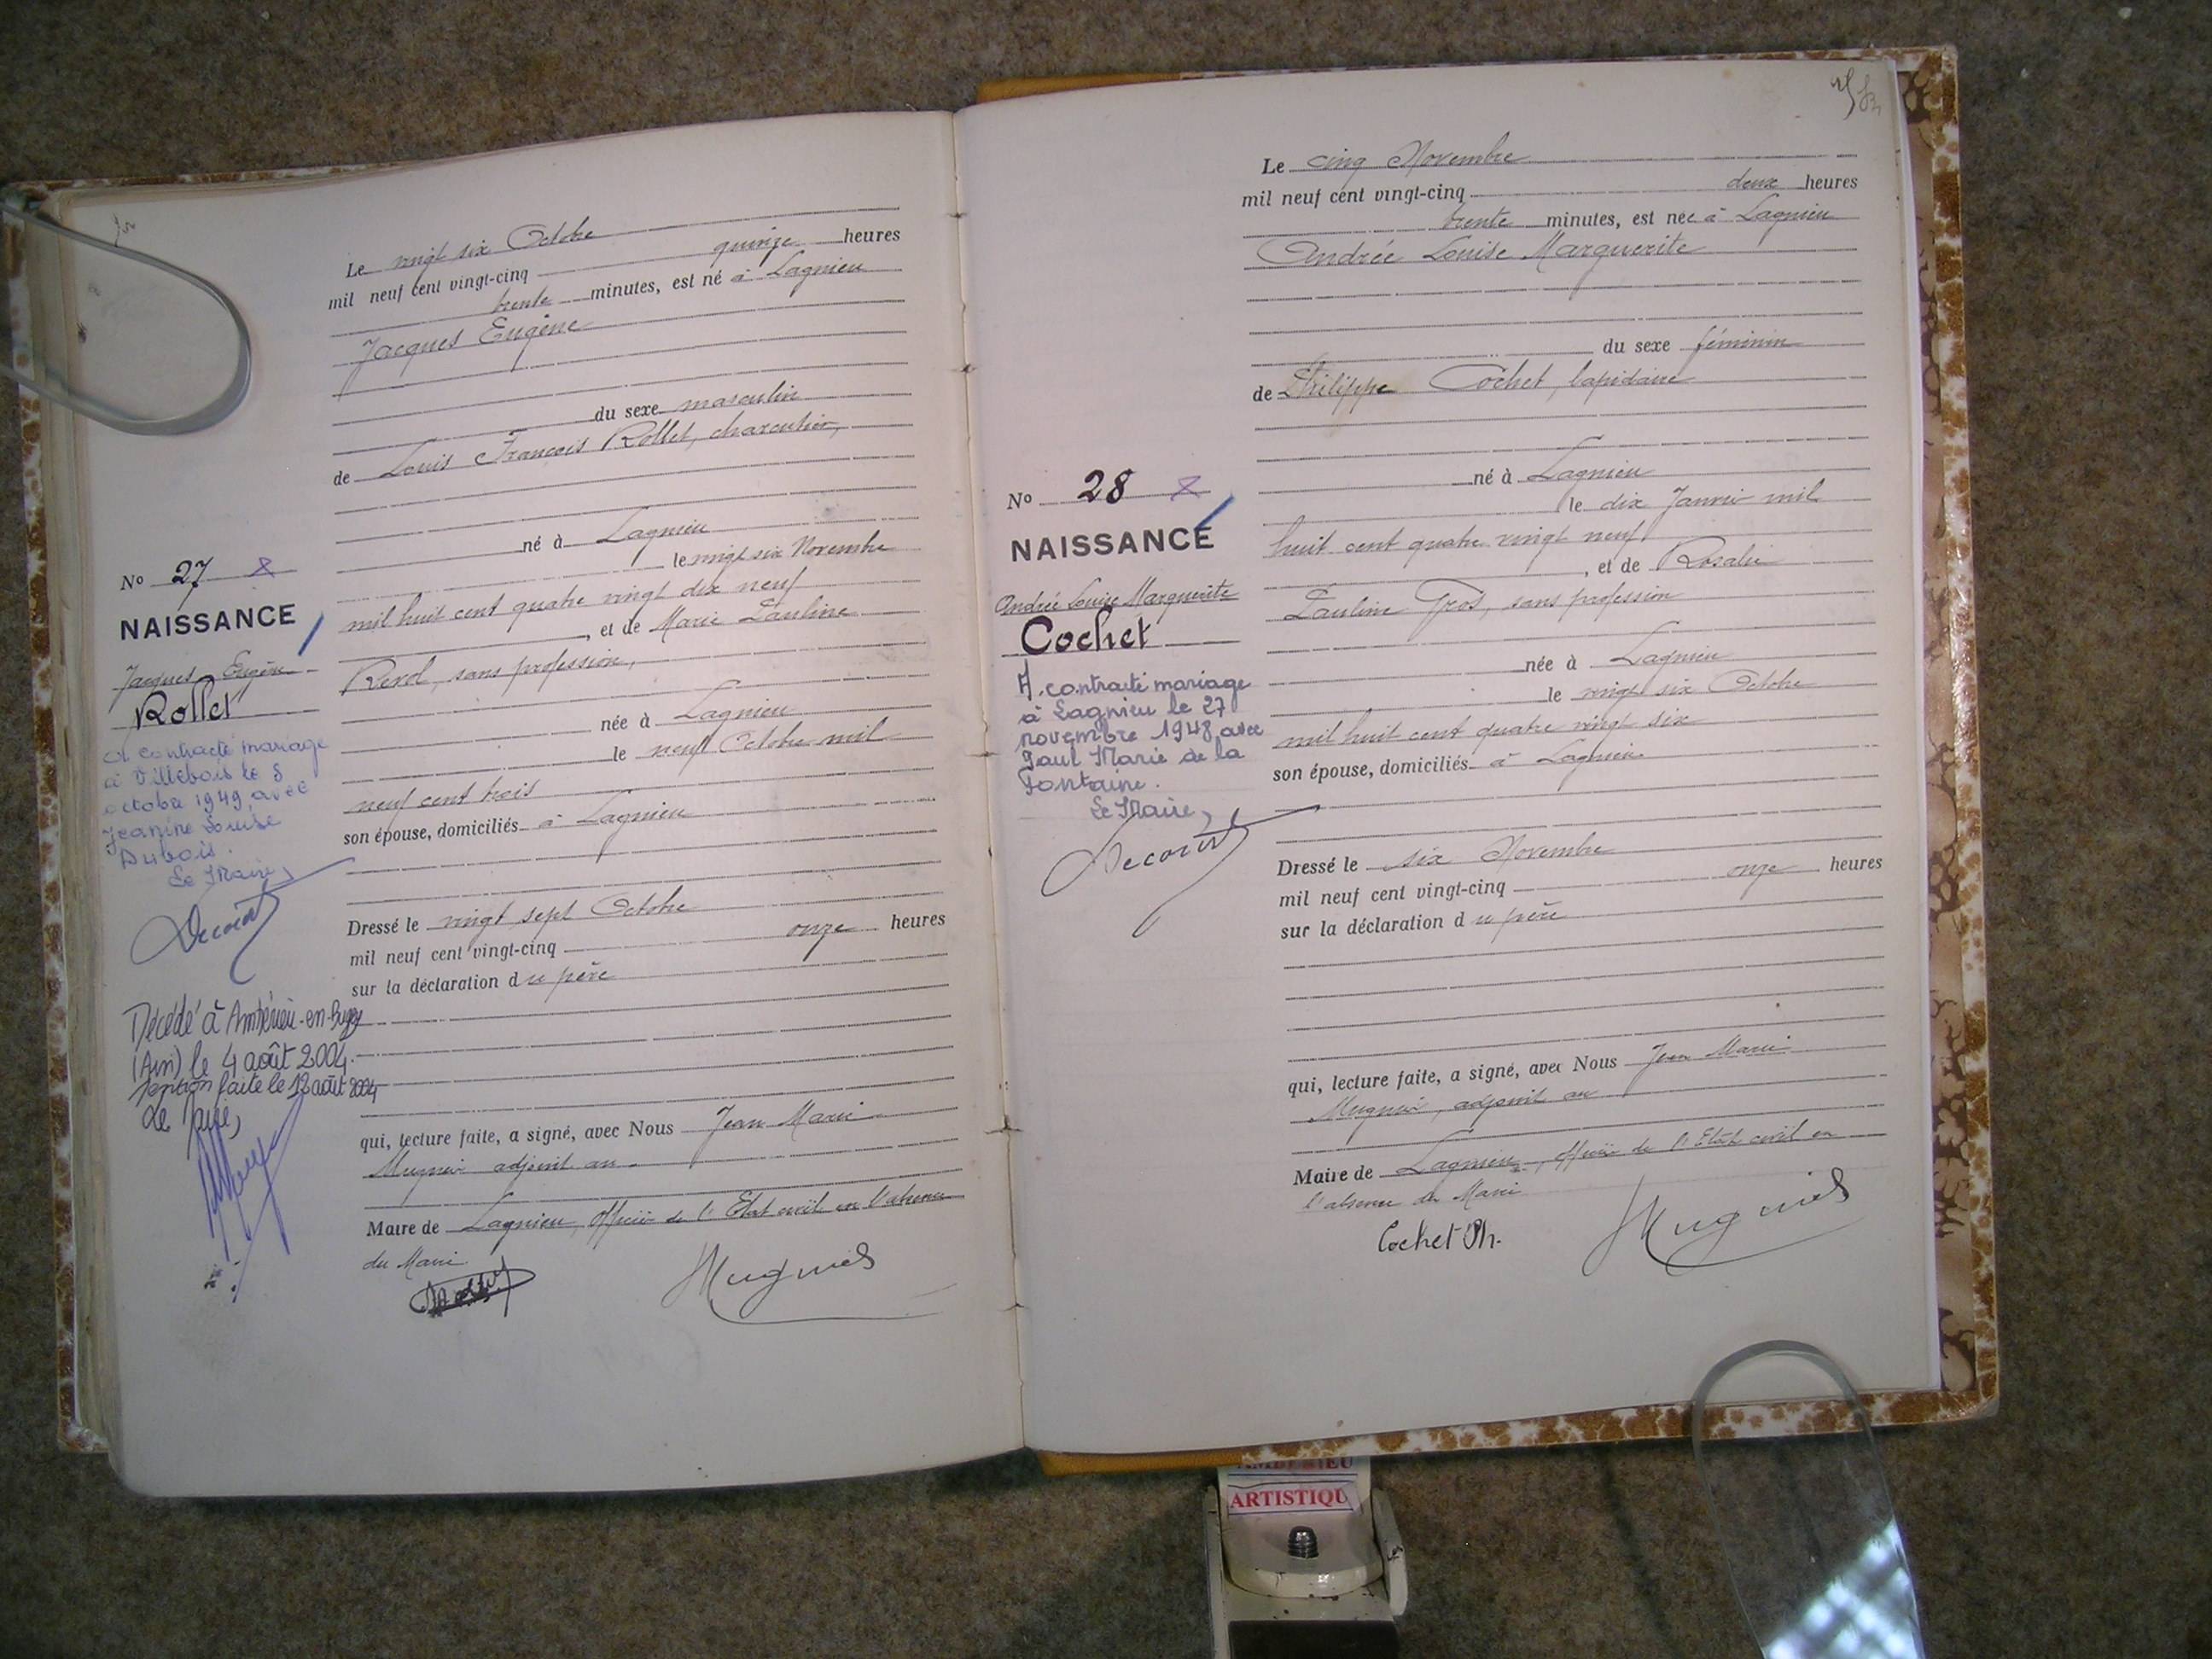 Le vingt six Octobre
mil neuf cent vingt-cinq quinze heures
trente minutes, est né à Lagnieu
Jacques Eugène
du sexe masculin
de Louis François Rollet, charcutier,
né à Lagnieu
le vingt six Novembre
mil huit cent quatre vingt dix neuf
, et de Marie Pauline
sans profession,
née à Lagnieu
le neuf Octobre mil
neuf cent trois
son épouse, domiciliés à Lagnieu
Dressé le vingt sept Octobre
mil neuf cent vingt-cinq onze heures
sur la déclaration du père
qui, lecture faite, a signé, avec Nous Jean Marie
adjoint au
Maire de Lagnieu, officier de l'Etat civil en l'absence
du Maire
No 27
NAISSANCE
Jacques Eugène
Rollet
A contracté mariage
à Villebois le 8
octobre 1949, avec
Jeanine Louise
Dubois.
Le Maire,
Décédé à Ambérieu-en-Bugey
(Ain) le 4 août 2004.
mention faite le 12 août 2004
Le Maire,
Le cinq Novembre
mil neuf cent vingt-cinq deux heures
trente minutes, est née à Lagnieu
Andrée Louise Marguerite
du sexe féminin
de Philippe Cochet, lapidaire
né à Lagnieu
le dix Janvier mil
huit cent quatre vingt neuf
, et de Rosalie
Pauline Gros, sans profession
née à Lagnieu
le vingt six Octobre
mil huit cent quatre vingt six
son épouse, domiciliés à Lagnieu
Dressé le six Novembre
mil neuf cent vingt-cinq onze heures
sur la déclaration du père
qui, lecture faite, a signé, avec Nous Jean Marie
adjoint au
Maire de Lagnieu, officier de l'Etat civil en
l'absence du Maire
Cochet Ph.
No 28
NAISSANCE
Andrée Louise Marguerite
Cochet
A contracté mariage
à Lagnieu le 27
novembre 1948, avec
Paul Marie de la
Fontaine.
Le Maire,
AMBERIEU
ARTISTIQU